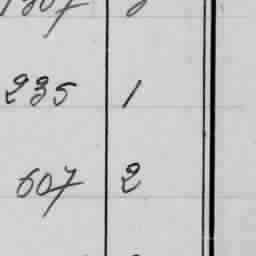 235 1
607 2